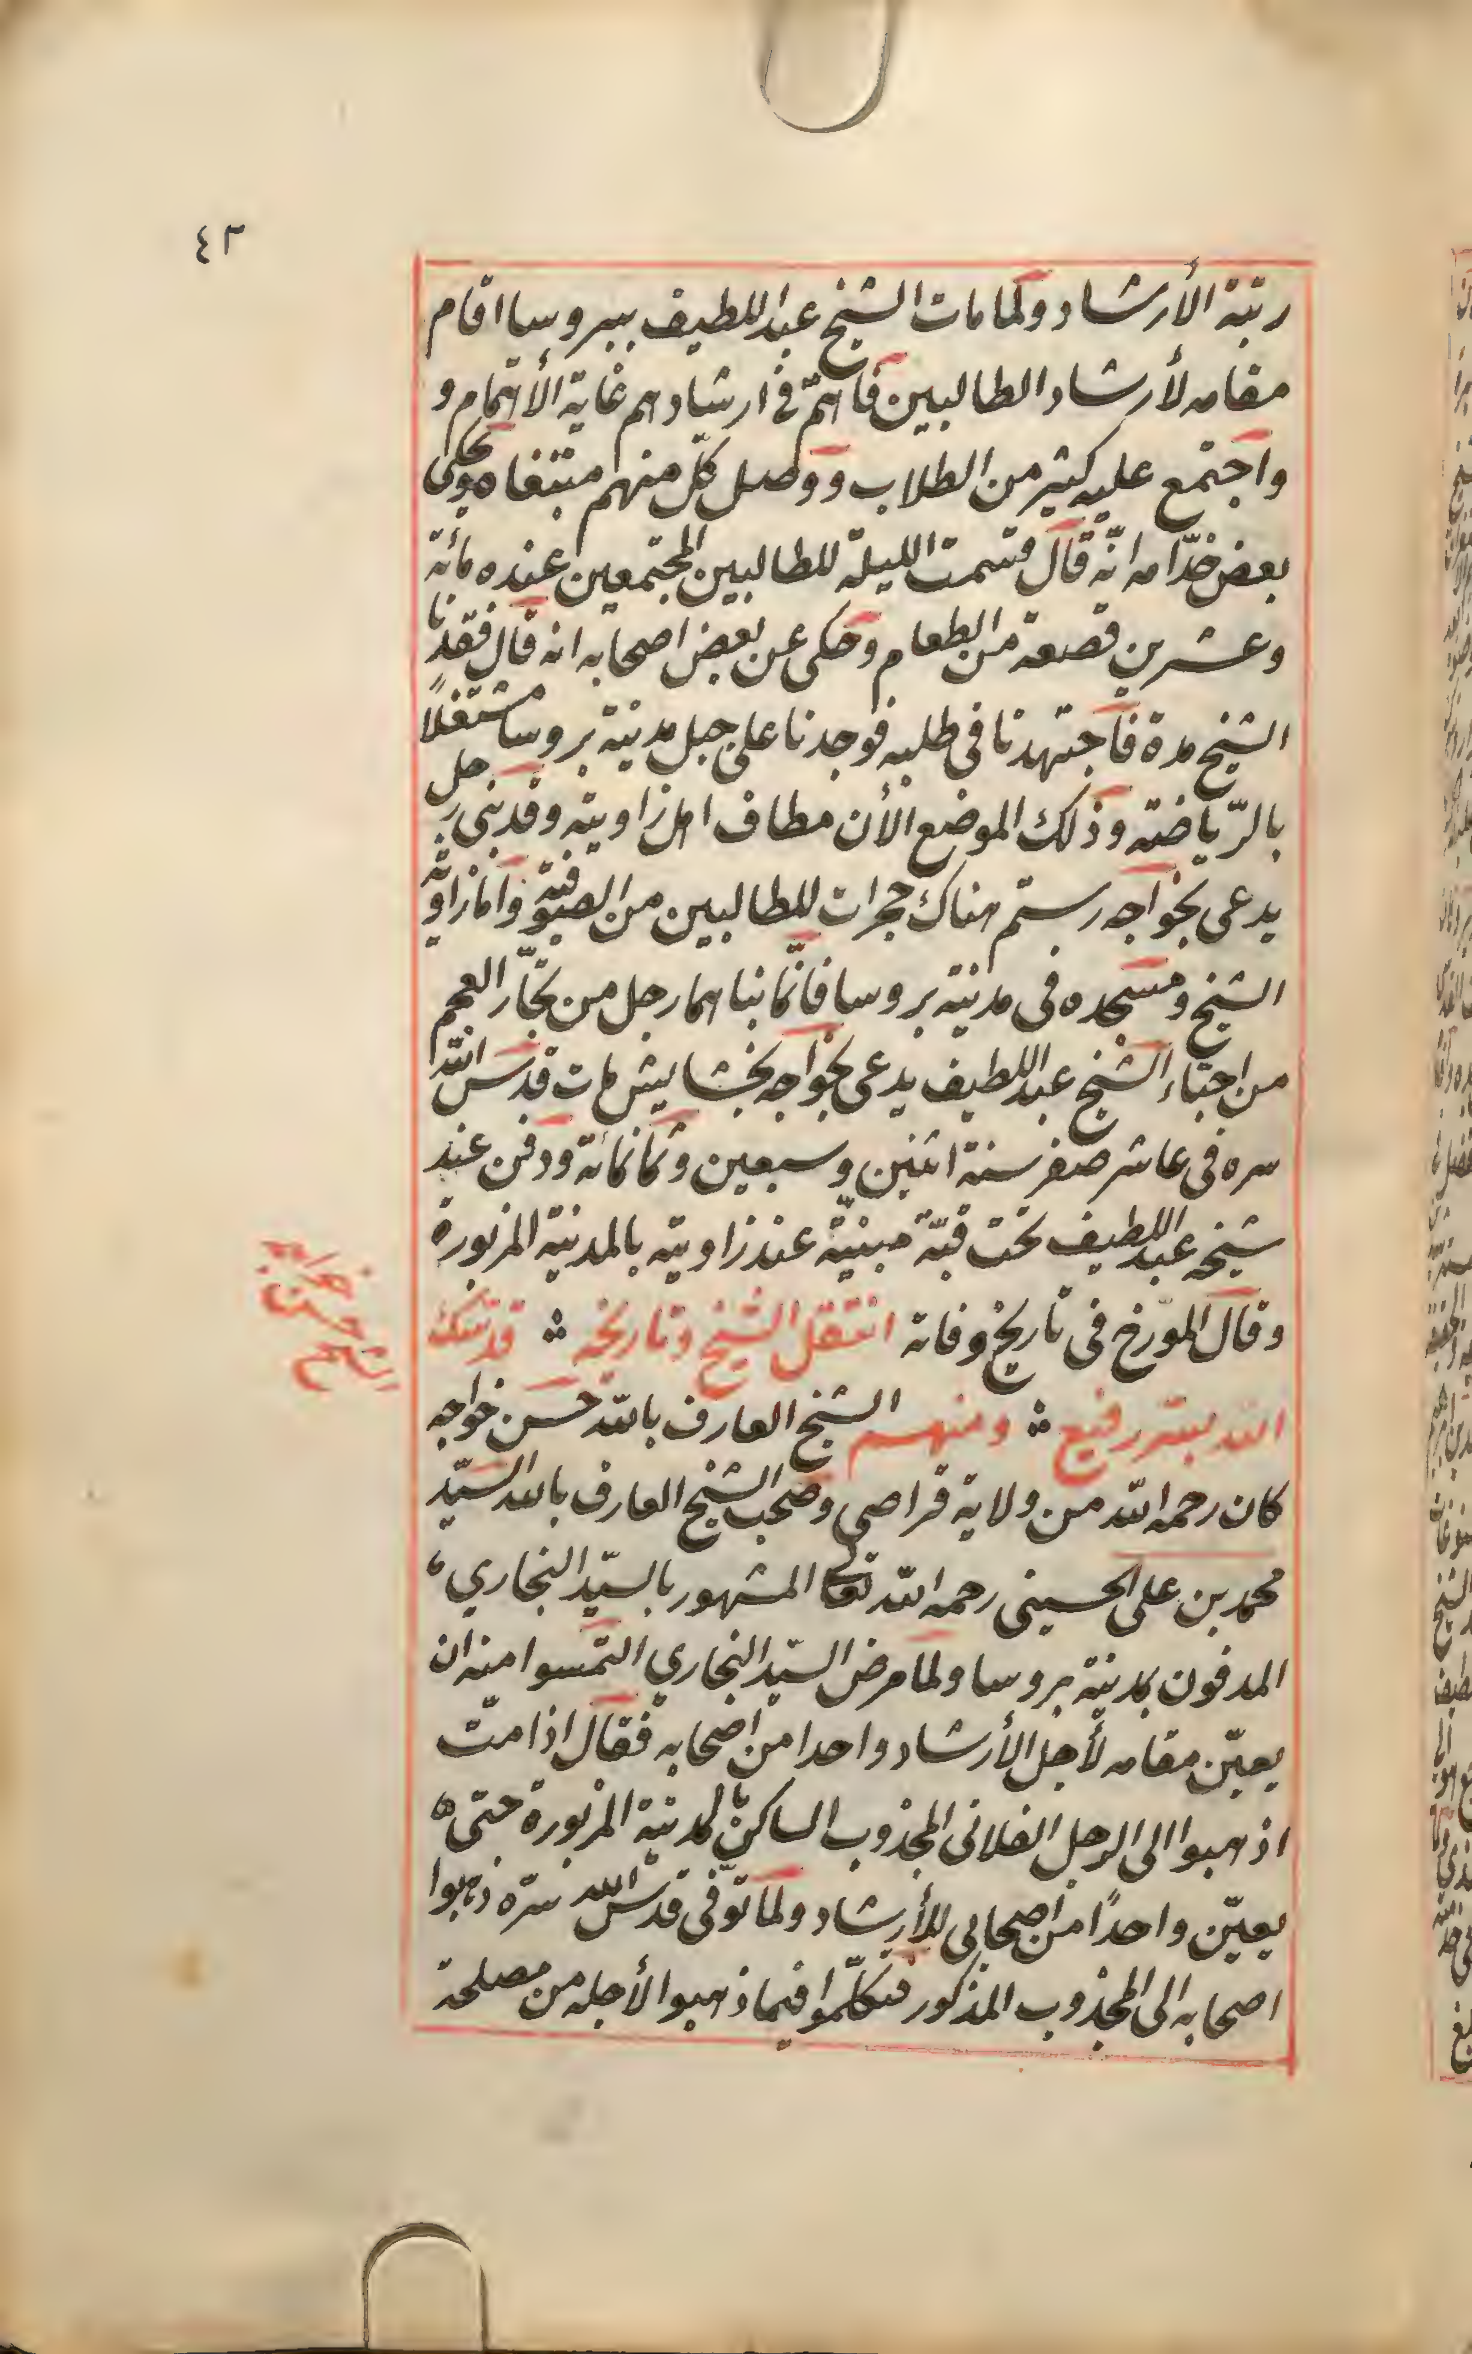 ٤٣
رتبة الأرشاد ولما مات الشيخ عبد اللطيف ببروسا اقام
مقامه لأرشاد الطالبين فاهتمّ في ارشادهم غاية الأهتمام و
واجتمع عليه كثير من الطلاب ووصل كلّ منهم مبتغاه وحكى
بعض خدّامه انّه قال قسمت الليلة للطالبين المجتمعين عنده مائة
وعشرين قصعة من الطعام وحكى عن بعض اصحابه انه قال فقدنا
الشيخ مدة فاجتهدنا في طلبه فوجدنا على جبل مدينة بروسا مشتغلاً
بالرّياضة وذلك الموضع الأن مطاف اهل زاويته وقد بنى رجل
يدعى بخواجه رستم هناك حجرات للطالبين من الصوفية وامّا زاوية
الشيخ ومسجده في مدينة بروسا فانّما بناهما رجل من تجّار العجم
من احبّاء الشيخ عبد اللطيف يدعى بخواجه بخشايش مات قدّس الله
سره في عاشر صفر سنة اثنين وسبعين وثمانمائة ودفن عند
شيخه عبد اللطيف تحت قبّة مبنيّة عند زاويته بالمدينة المزبورة
وقال المورّخ في تاريخ وفاته انتقل الشيخ وتاريخه ∴ قدّسك
الله بسرّ رفيع ∴ ومنهم الشيخ العارف بالله حسن خواجه
الشيخ حسن خواجه
كان رحمه الله من ولاية قراصي وصحب الشيخ العارف بالله السيّد
محمد بن على الحسيني رحمه الله تعالى المشهور بالسيّد البخاري
المدفون بمدينة بروسا ولما مرض السيّد البخاري التمسوا منه ان
يعيّن مقامه لأجل الأرشاد واحدا من اصحابه فقال اذا متّ
اذهبوا الى الرجل الفلاني المجذوب الساكن بالمدينة المزبورة حتى
يعيّن واحدًا من اصحابي للأرشاد ولمّا توّفى قدّس الله سرّه ذهبوا
اصحابه الى المجذوب المذكور فتكلّموا فيما ذهبوا لأجله من مصلحة